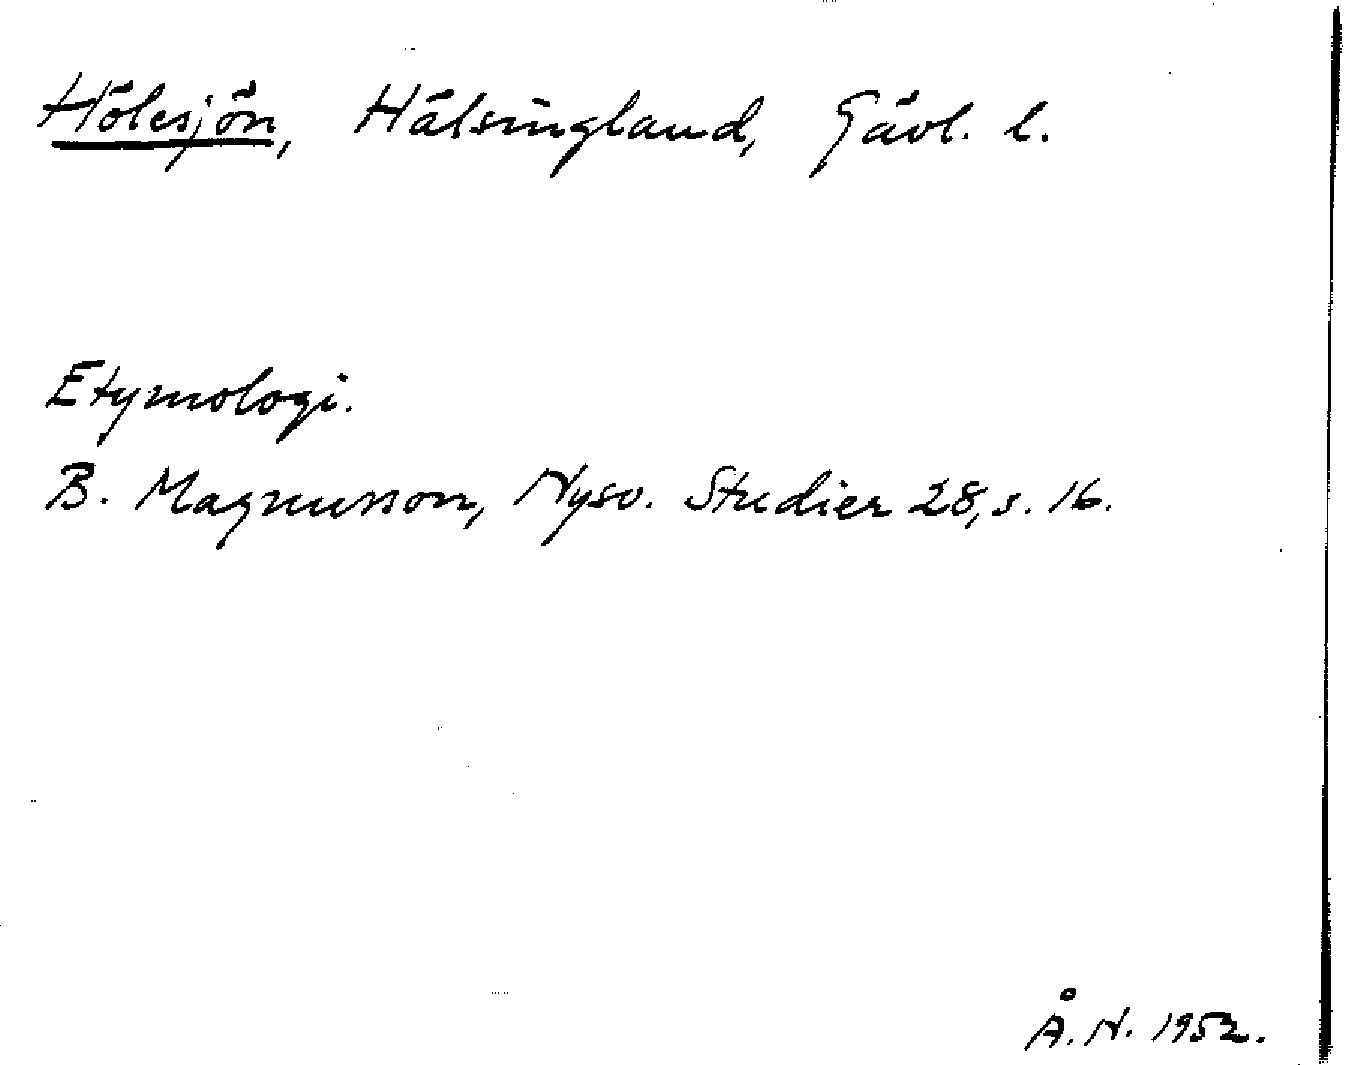 Hölesjön, Hälsingland, Gävl. l.
Etymologi.
B. Magnusson, Nysv. Studier 28, s. 16.
Å. N. 1952.